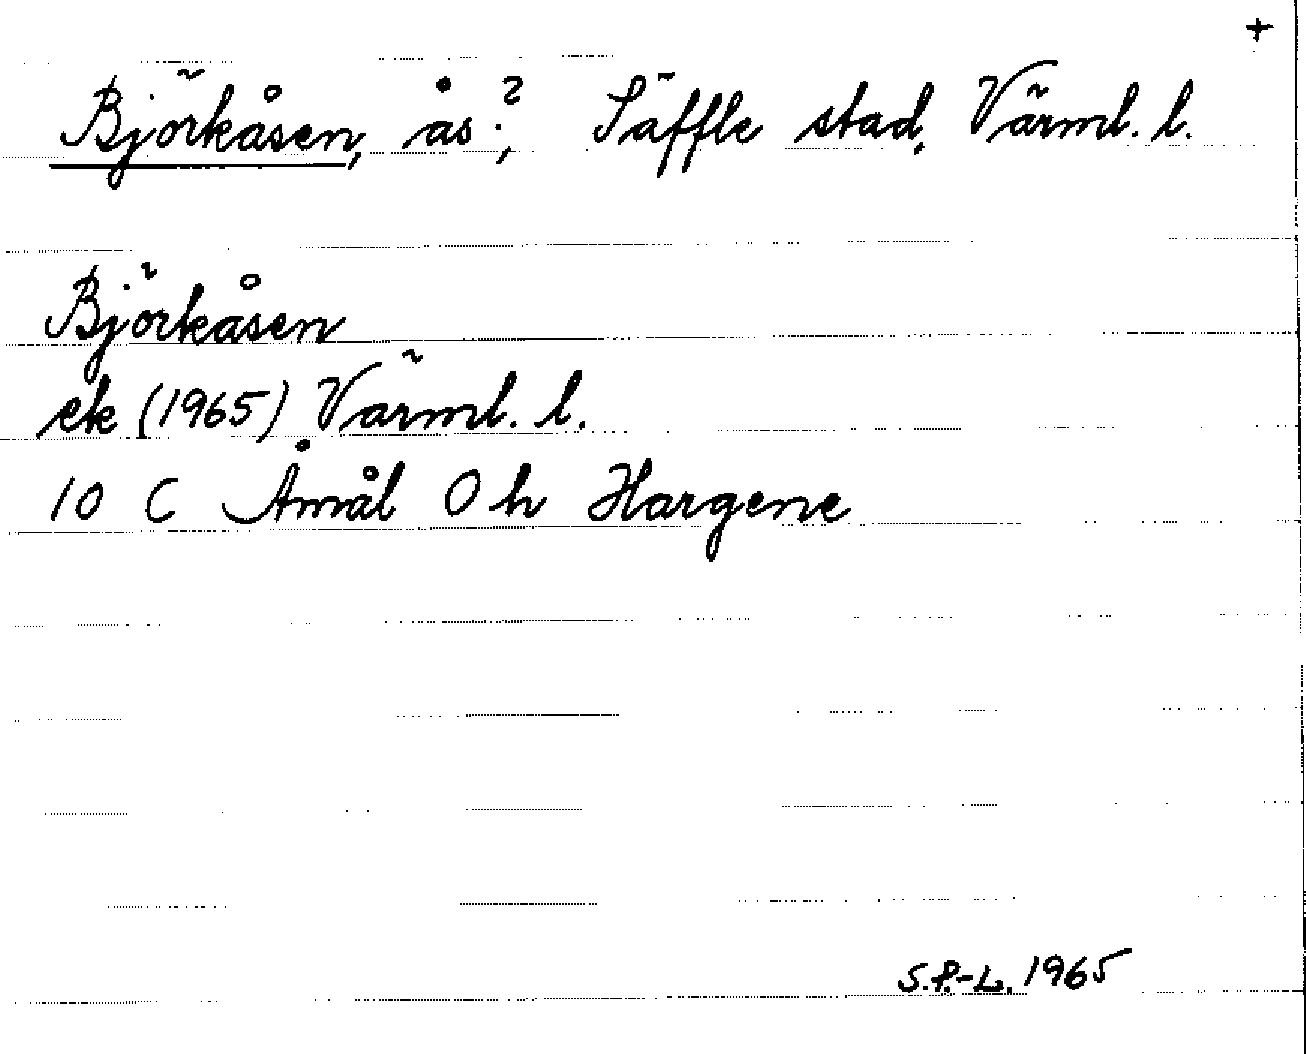 +
Björkåsen, ås?, Säffle stad, Värml. l.
Björkåsen
ek (1965) Värml. l.
10 C Åmål 0 h Hargene
S.P.-L. 1965